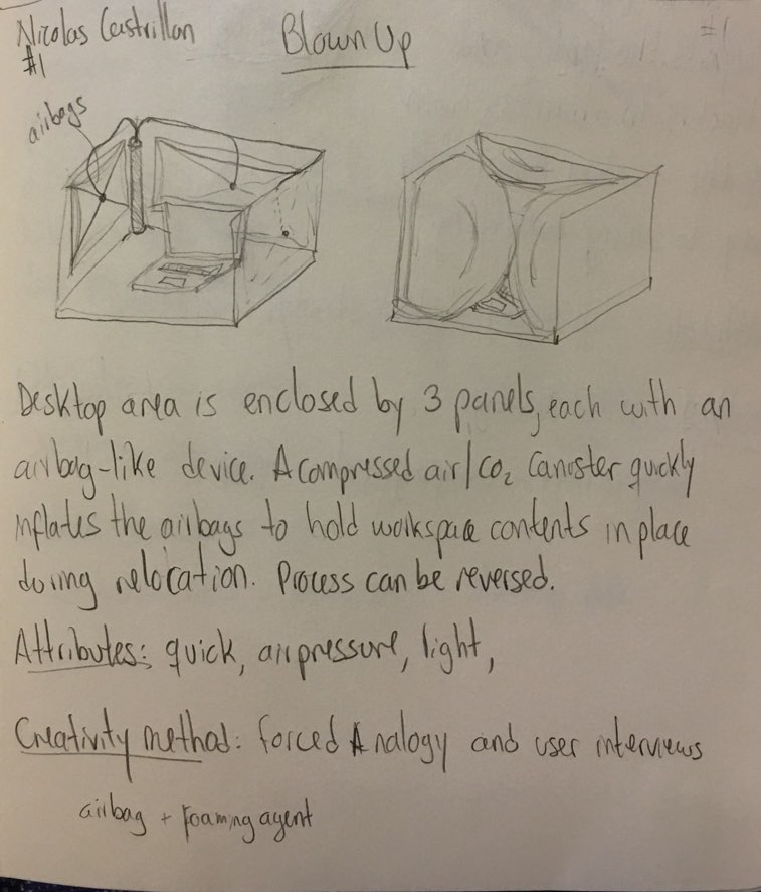 Nicolas Castrillon
#1
Blown Up
#1
airbags
Desktop area is enclosed by 3 panels, each with an
airbag-like device. A compressed air/CO₂ Canister quickly
inflates the airbags to hold workspace contents in place
during relocation. Process can be reversed.
Attributes: quick, air pressure, light,
Creativity method: forced Analogy and user interviews
airbag + foaming agent